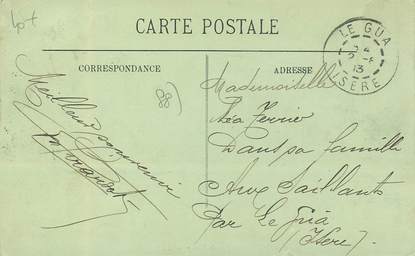 lot
CARTE POSTALE
LE GUA
ISÈRE
13
CORRESPONDANCE
ADRESSE
88)
Meilleur souvenir
Mademoiselle
Léa Ferrier
Dans sa famille
Aux Saillants
Par Le Gua
(Isère).